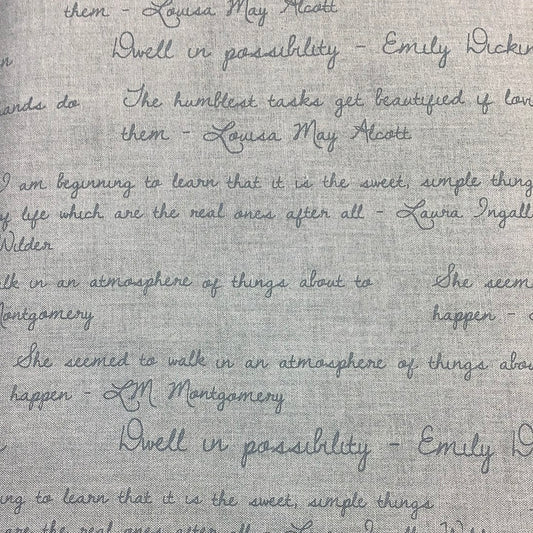 them - Louisa May Alcott
n Dwell in possibility - Emily Dickin
ands do The humblest tasks get beautified if lov
them - Louisa May Alcott
I am beginning to learn that it is the sweet, simple thing
of life which are the real ones after all - Laura Ingall
Wilder
alk in an atmosphere of things about to She seem
Montgomery happen -
She seemed to walk in an atmosphere of things abou
happen - LM Montgomery
Dwell in possibility - Emily D
ing to learn that it is the sweet, simple things
are the real ones after all - Laura Ingalls Wilder